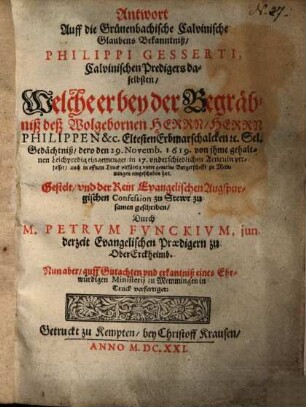 N. 27.
Antwort
Auff die Grünenbachische Calvinische
Glaubens Bekanntniß/
PHILIPPI GESSERTI,
Calvinischen Predigers da-
selbsten/
Welche er bey der Begräb-
niß deß Wolgebornen HERRN/ HERRN
PHILIPPEN &c. Eltesten Erbmarschalcken ꝛc. Sel.
Gedächtniß/ dero den 29. Novemb. 1619. von ihme gehalt-
nen Leichpredig eingemenget in 17. underschiedlichen Articuln ver-
fasset/ auch in offnem Truck
mingen eingeschoben hat.
Gestelt/ und der Rein Evangelischen Augspur-
gischen Confession zu Stewr zu
samen geschriben/
Durch
M. PETRVM FVNCKIVM, jun.
derzeit Evangelischen Prædigern zu
OberErckheimb.
Nun aber/ auff Gutachten und erkantniß eines Ehr-
würdigen Ministerij zu Memmingen in
Truck verfertiget:
Getruckt zu Kempten/ bey Christoff Krausen/
ANNO M. DC. XXI.